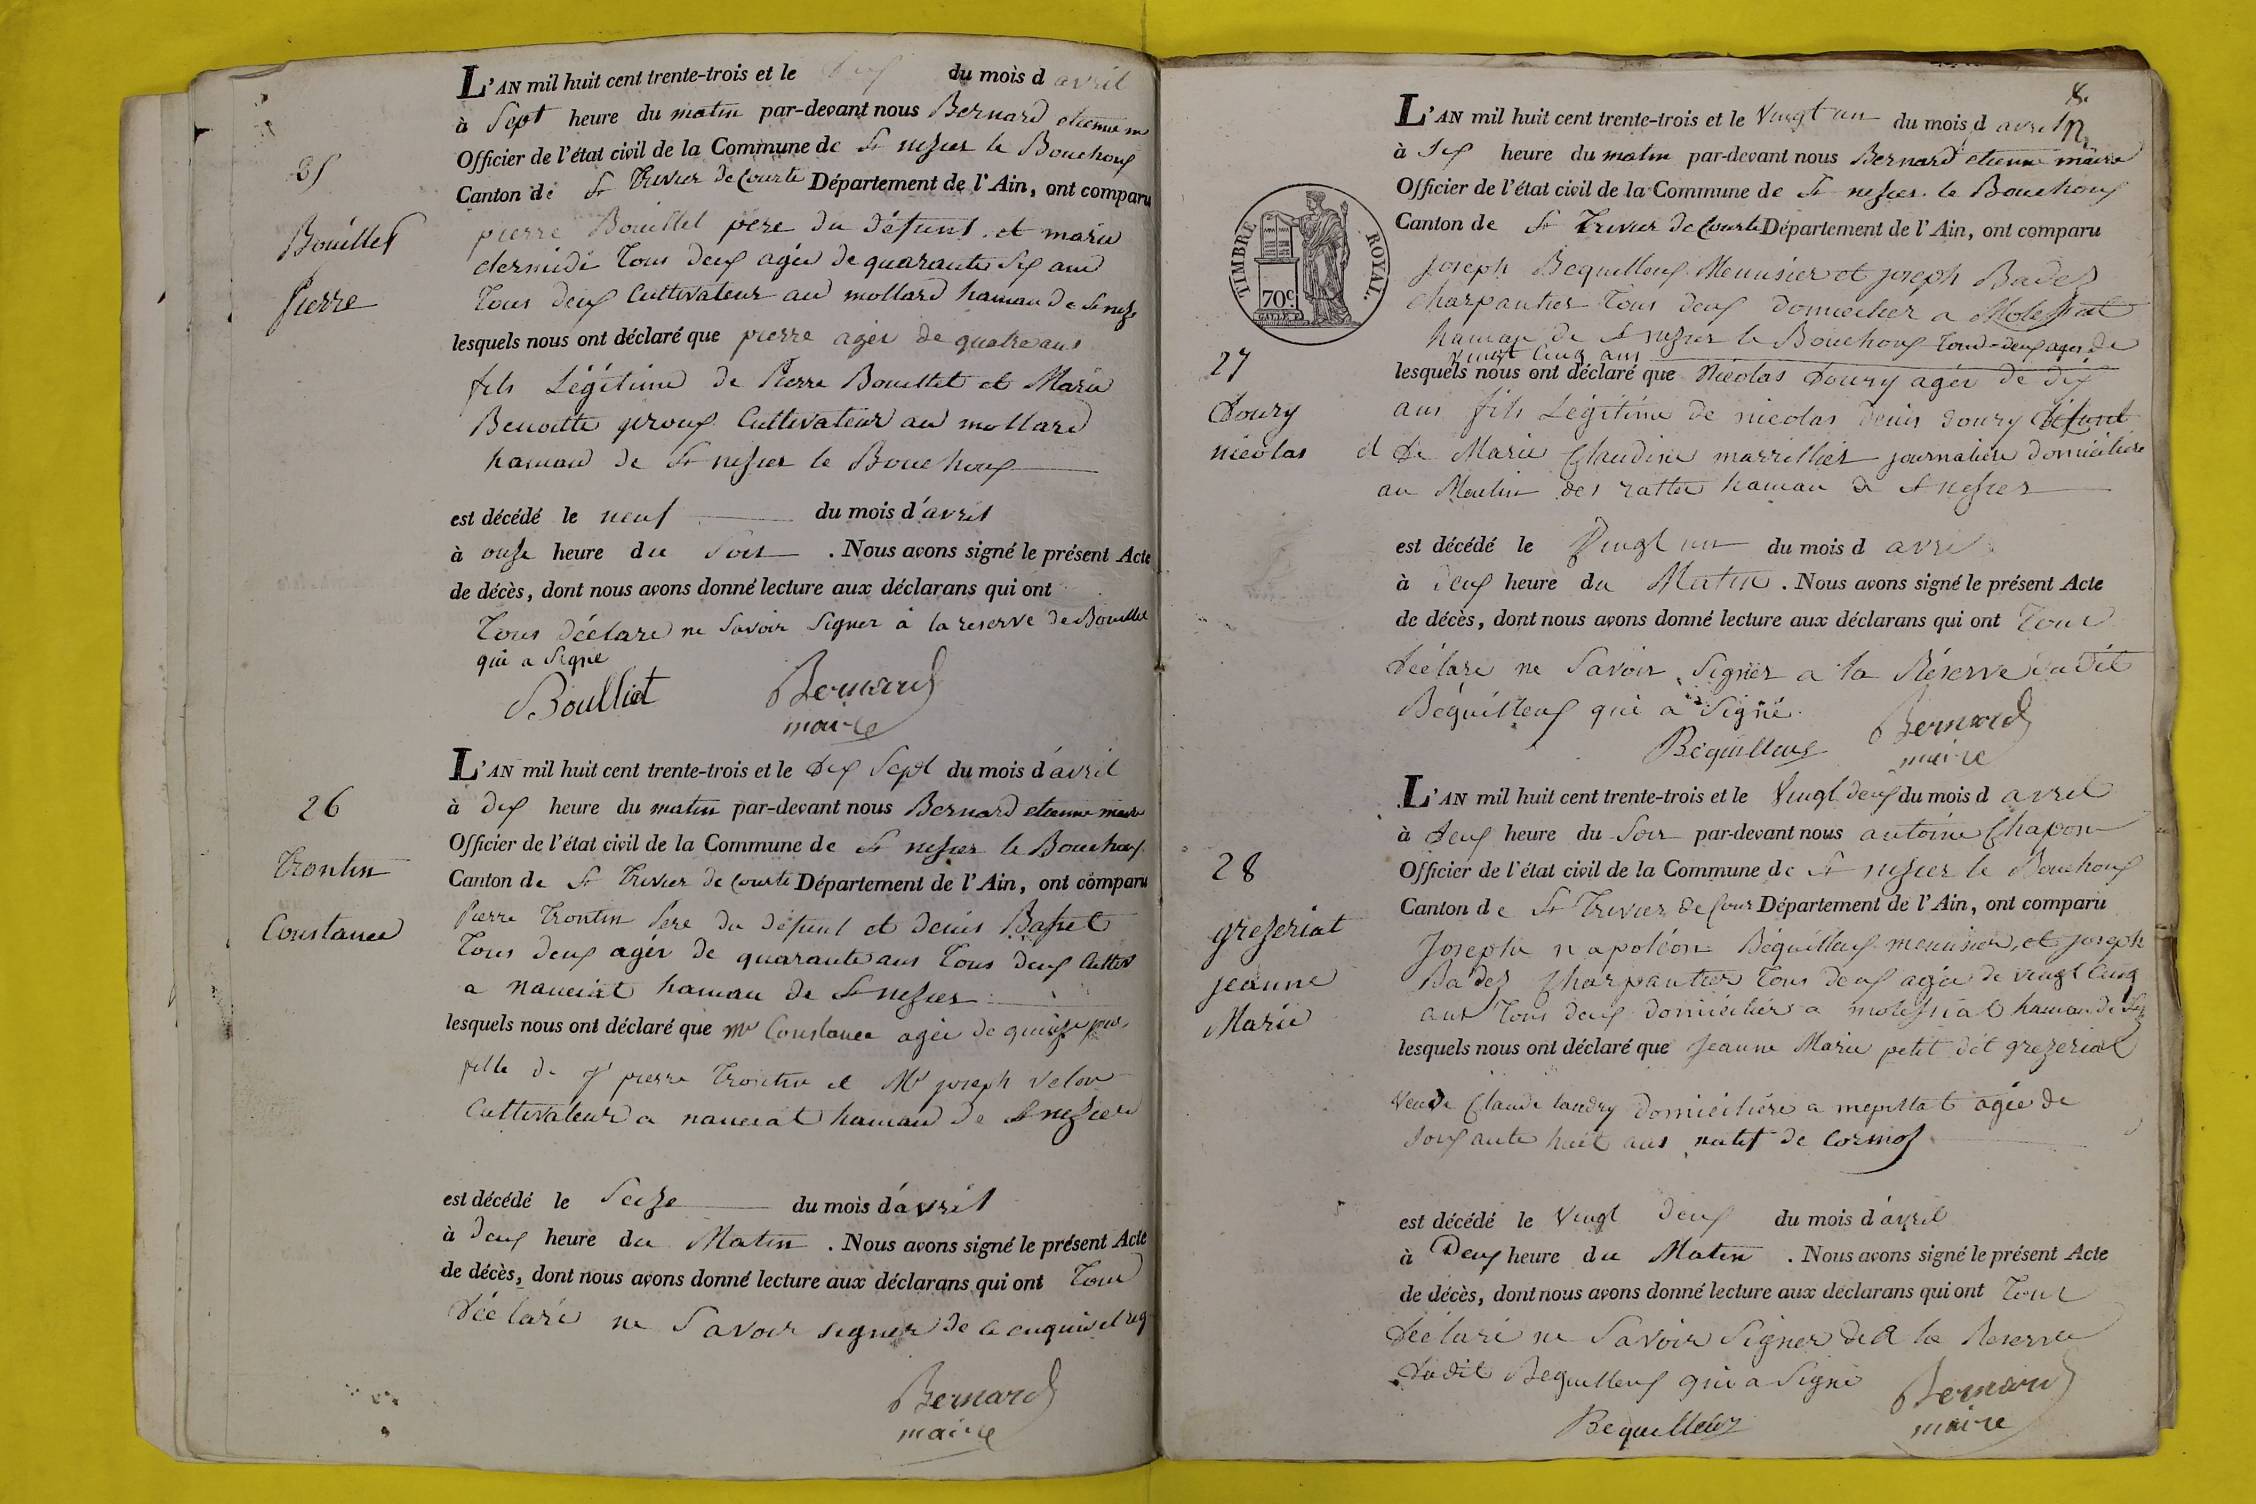 L'AN mil huit cent trente-trois et le dix du mois d avril
à Sept heure du matin par-devant nous Bernard etienne m
Officier de l'état civil de la Commune de St nizier le Bouchoux
Canton de St Trivier de Courte Département de l'Ain, ont comparu
25
Bouillet
Pierre
pierre Bouillet pere du défunt et marie
tous deux agée de quarante six ans
Tous deux Cultivateur au mollard hamau de St niz
lesquels nous ont déclaré que pierre agée de quatre ans
fils Légitime de Pierre Bouillet et Marie
Benoitte geroux Cultivateur au mollard
hamau de St nizier le Bouchoux
est décédé le neuf du mois d'avril
à onze heure du Soir . Nous avons signé le présent Acte
de décès, dont nous avons donné lecture aux déclarans qui ont
Tous déclare ne Savoir Signer a la reserve de Bouillet
qui a Signe
Boulliat Bernard
maire
L'AN mil huit cent trente-trois et le dix Sept du mois d'avril
à dix heure du matin par-devant nous Bernard etienne maire
Officier de l'état civil de la Commune de St nizier le Bouchoux
Canton de St Trivier de Courte Département de l'Ain, ont comparu
26
Trontin
Constance
Pierre Trontin Pere du défunt et denis Bafset
Tous deux agée de quarante ans Tous deux Cultiv
a nanciat hamau de St nizier
lesquels nous ont déclaré que Mie Constance agée de quinze jour
fille de pierre Trontin et Mie joseph velon
Cultivateur a nanciat hamau de St nizier
est décédé le Seize du mois d'avril
à deux heure du Matin . Nous avons signé le présent Acte
de décès, dont nous avons donné lecture aux déclarans qui ont Tous
Déclaré ne Savoir signer de ce enquis et req
Bernard
maire
8.
L'AN mil huit cent trente-trois et le Vingt un du mois d avril
à Six heure du matin par-devant nous Bernard etienne maire
Officier de l'état civil de la Commune de St nizier le Bouchoux
Canton de St Trivier de Courte Département de l'Ain, ont comparu
TIMBRE ROYAL.
70c
27
Doury
nicolas
joseph Bequilleux Menuisier et joseph Badez
charpantier Tous deux domicilier a
hamau de St nizier le Bouchoux Tous deux agés de
vingt Cinq ans
lesquels nous ont déclaré que Nicolas Doury agée de dix
ans fils Légitime de nicolas denis Doury défunt
et de Marie Claudine marrillier journalière domicilière
au Moulin des rattes hamau de St nizier
est décédé le Vingt un du mois d avril
à deux heure du Matin . Nous avons signé le présent Acte
de décès, dont nous avons donné lecture aux déclarans qui ont Tous
Déclare ne Savoir Signer a la Réserve dudit
Béquilleux qui a Signé.
Béquilleux Bernard
maire
L'AN mil huit cent trente-trois et le Vingt deux du mois d avril
à deux heure du Soir par-devant nous antoine Chapon
Officier de l'état civil de la Commune de St nizier le Bouchoux
Canton de St Trivier de Cour Département de l'Ain, ont comparu
28
grezeriat
jeanne
Marie
Joseph napoléon Béquilleux menuisier, et joseph
Badez Charpantier Tous deux agée de vingt Cinq
ans Tous deux domicilier a hamau de
lesquels nous ont déclaré que Jeanne Marie petit dit grezeriat
veuve Claude landry Domicilière a mepillat agée de
Soixante huit ans natif de Cormoz
est décédé le Vingt deux du mois d'avril
à Deux heure du Matin . Nous avons signé le présent Acte
de décès, dont nous avons donné lecture aux déclarans qui ont Tous
Déclaré ne Savoir Signer de a la Reserve
dudit Bequilleux qui a Signé
Bequilleux Bernard
maire